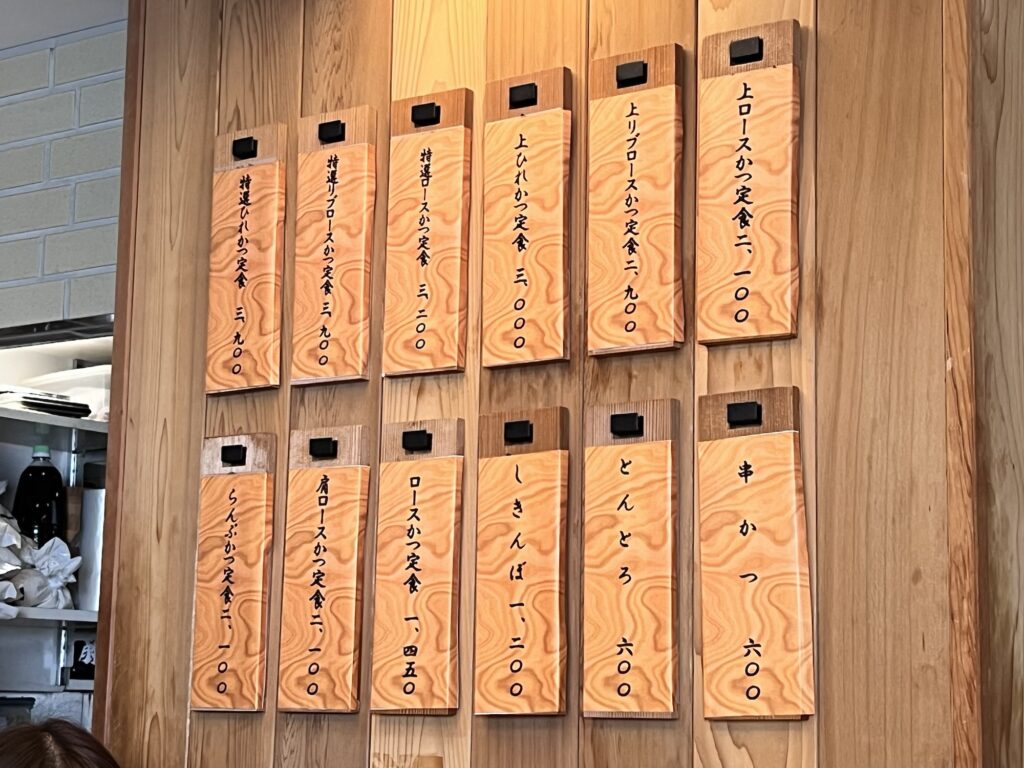 上ロースかつ定食二、一〇〇
上リブロースかつ定食二、九〇〇
上ひれかつ定食 三、〇〇〇
特選ロースかつ定食 三、二〇〇
特選リブロースかつ定食三、九〇〇
特選ひれかつ定食 三、九〇〇
串かつ 六〇〇
とんとろ 六〇〇
しきんぼ 一、二〇〇
ロースかつ定食 一、四五〇
肩ロースかつ定食二、一〇〇
らんぷかつ定食二、一〇〇